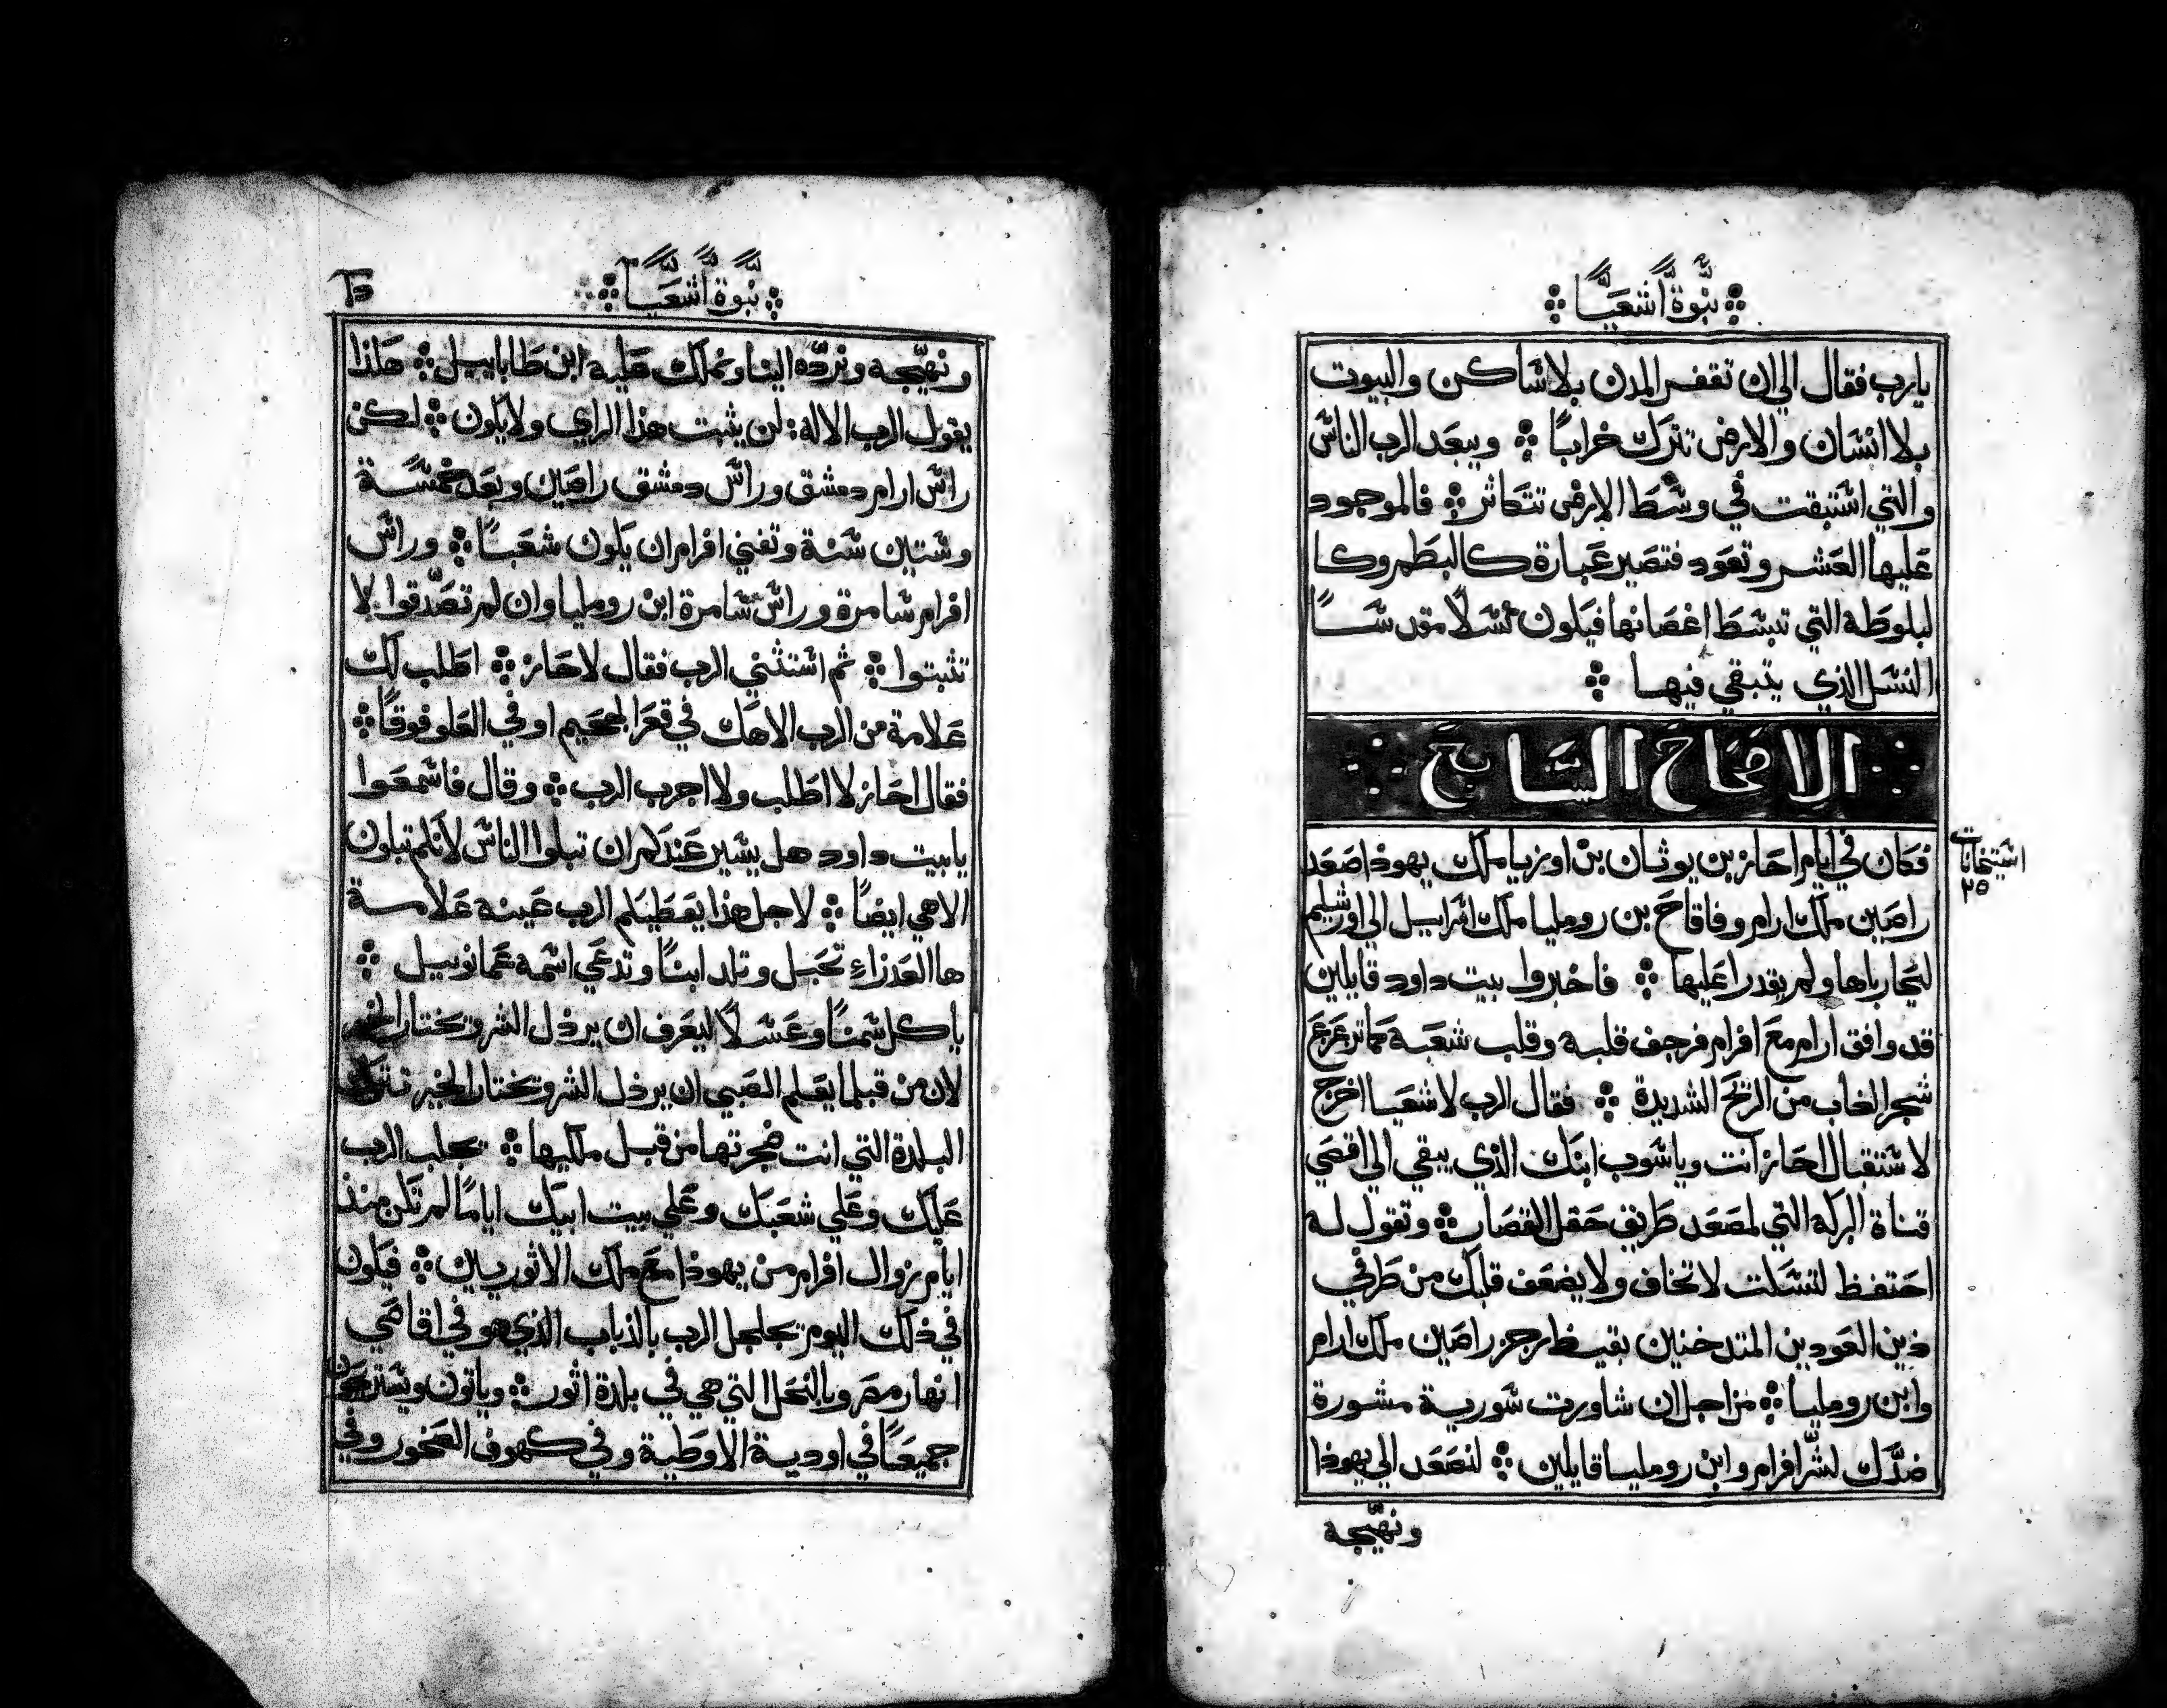 نبوة اشعيا
يارب فقال الي ان تقفر المدن بلا ساكن والبيوت
بلا انسان والارض تترك خرابًا ويبعد الرب الناس
والتي استبقت في وسط الارض تتكاثر فالموجود
عليها العشر وتعود فتصير عبارة كالبطم وكا
لبلوطة التي تبسط اغصانها فيكون نسلًا مقدسًا
النسل الذي يتبقي فيها
الاصحاح السابع
فكان في ايام احاز بن يوثان بن اوزيا ملك يهوذا صعد
راصين ملك ارام وفاقاح بن رومليا ملك اسراييل الي اورشليم
ليحارباها ولم يقدرا عليها فاخبروا بيت داود قايلين
قد وافق ارام مع افرام فرجف قلبه وقلب شعبه كما تزعزع
شجر الغاب من الريح الشديدة فقال الرب لاشعيا اخرج
لاستقبال احاز انت وياشوب ابنك الذي يبقي الي اقصي
قناة البركه التي لمصعد طريق حقل القصار وتقول له
احتفظ لتسكت لا تخاف ولا يضعف قلبك من طرفي
ذين العودين المتدخنين بقيظ رجز راصين ملك ارام
وابن رومليا من اجل ان شاورت سورية مشورة
ضدّك لشّر افرام وابن رومليا قايلين لنصعد الي يهوذا
ونهيّجه
استيخانات
٢٥
نبوة اشعيا
ونهيّجه ونردّه الينا ونملك عليه ابن طاباييل هكذا
يقول الرب الاله لن يثبت هذا الراي ولا يكون لكن
راس ارام دمشق وراس دمشق راصين وبعد خمسة
وستين سنة وتفني افرام ان يكون شعبًا وراس
افرام سامرة وراس سامرة ابن رومليا وان لم تصدّقوا لا
تثبتوا ثم استثني الرب فقال لاحاز اطلب لك
علامة من الرب الاهك في قعر الجحيم او في العلو فوقًا
فقال احاز لا اطلب ولا اجرب الرب وقال فاسمعوا
يا بيت داود هل يسير عندكم ان تبلوا الناس لانكم تبلون
الاهي ايضًا لاجل هذا يعطيكم الرب عينه علامة
ها العذراء تحبل وتلد ابنًا وتدعي اسمه عمانوييل
ياكل سمنًا وعسلًا ليعرف ان يرذل الشر ويختار الخير
لان من قبلما يعلم الصبي ان يرذل الشر ويختار الخير تترك
البلدة التي انت ضجرتها من قبل ملكيها يجلب الرب
عليك وعلي شعبك وعلي بيت ابيك ايامًا لم تكن منذ
ايام زوال افرام من يهوذا مع ملك الاثوريين فيكون
في ذلك اليوم يجلجل الرب بالذباب الذي هو في اقاصي
انهار مصر وبالنحل التي هي في بلدة اثور وياتون ويستريحون
جميعًا في اودية الاوطية وفي كهوف الصخور وفي